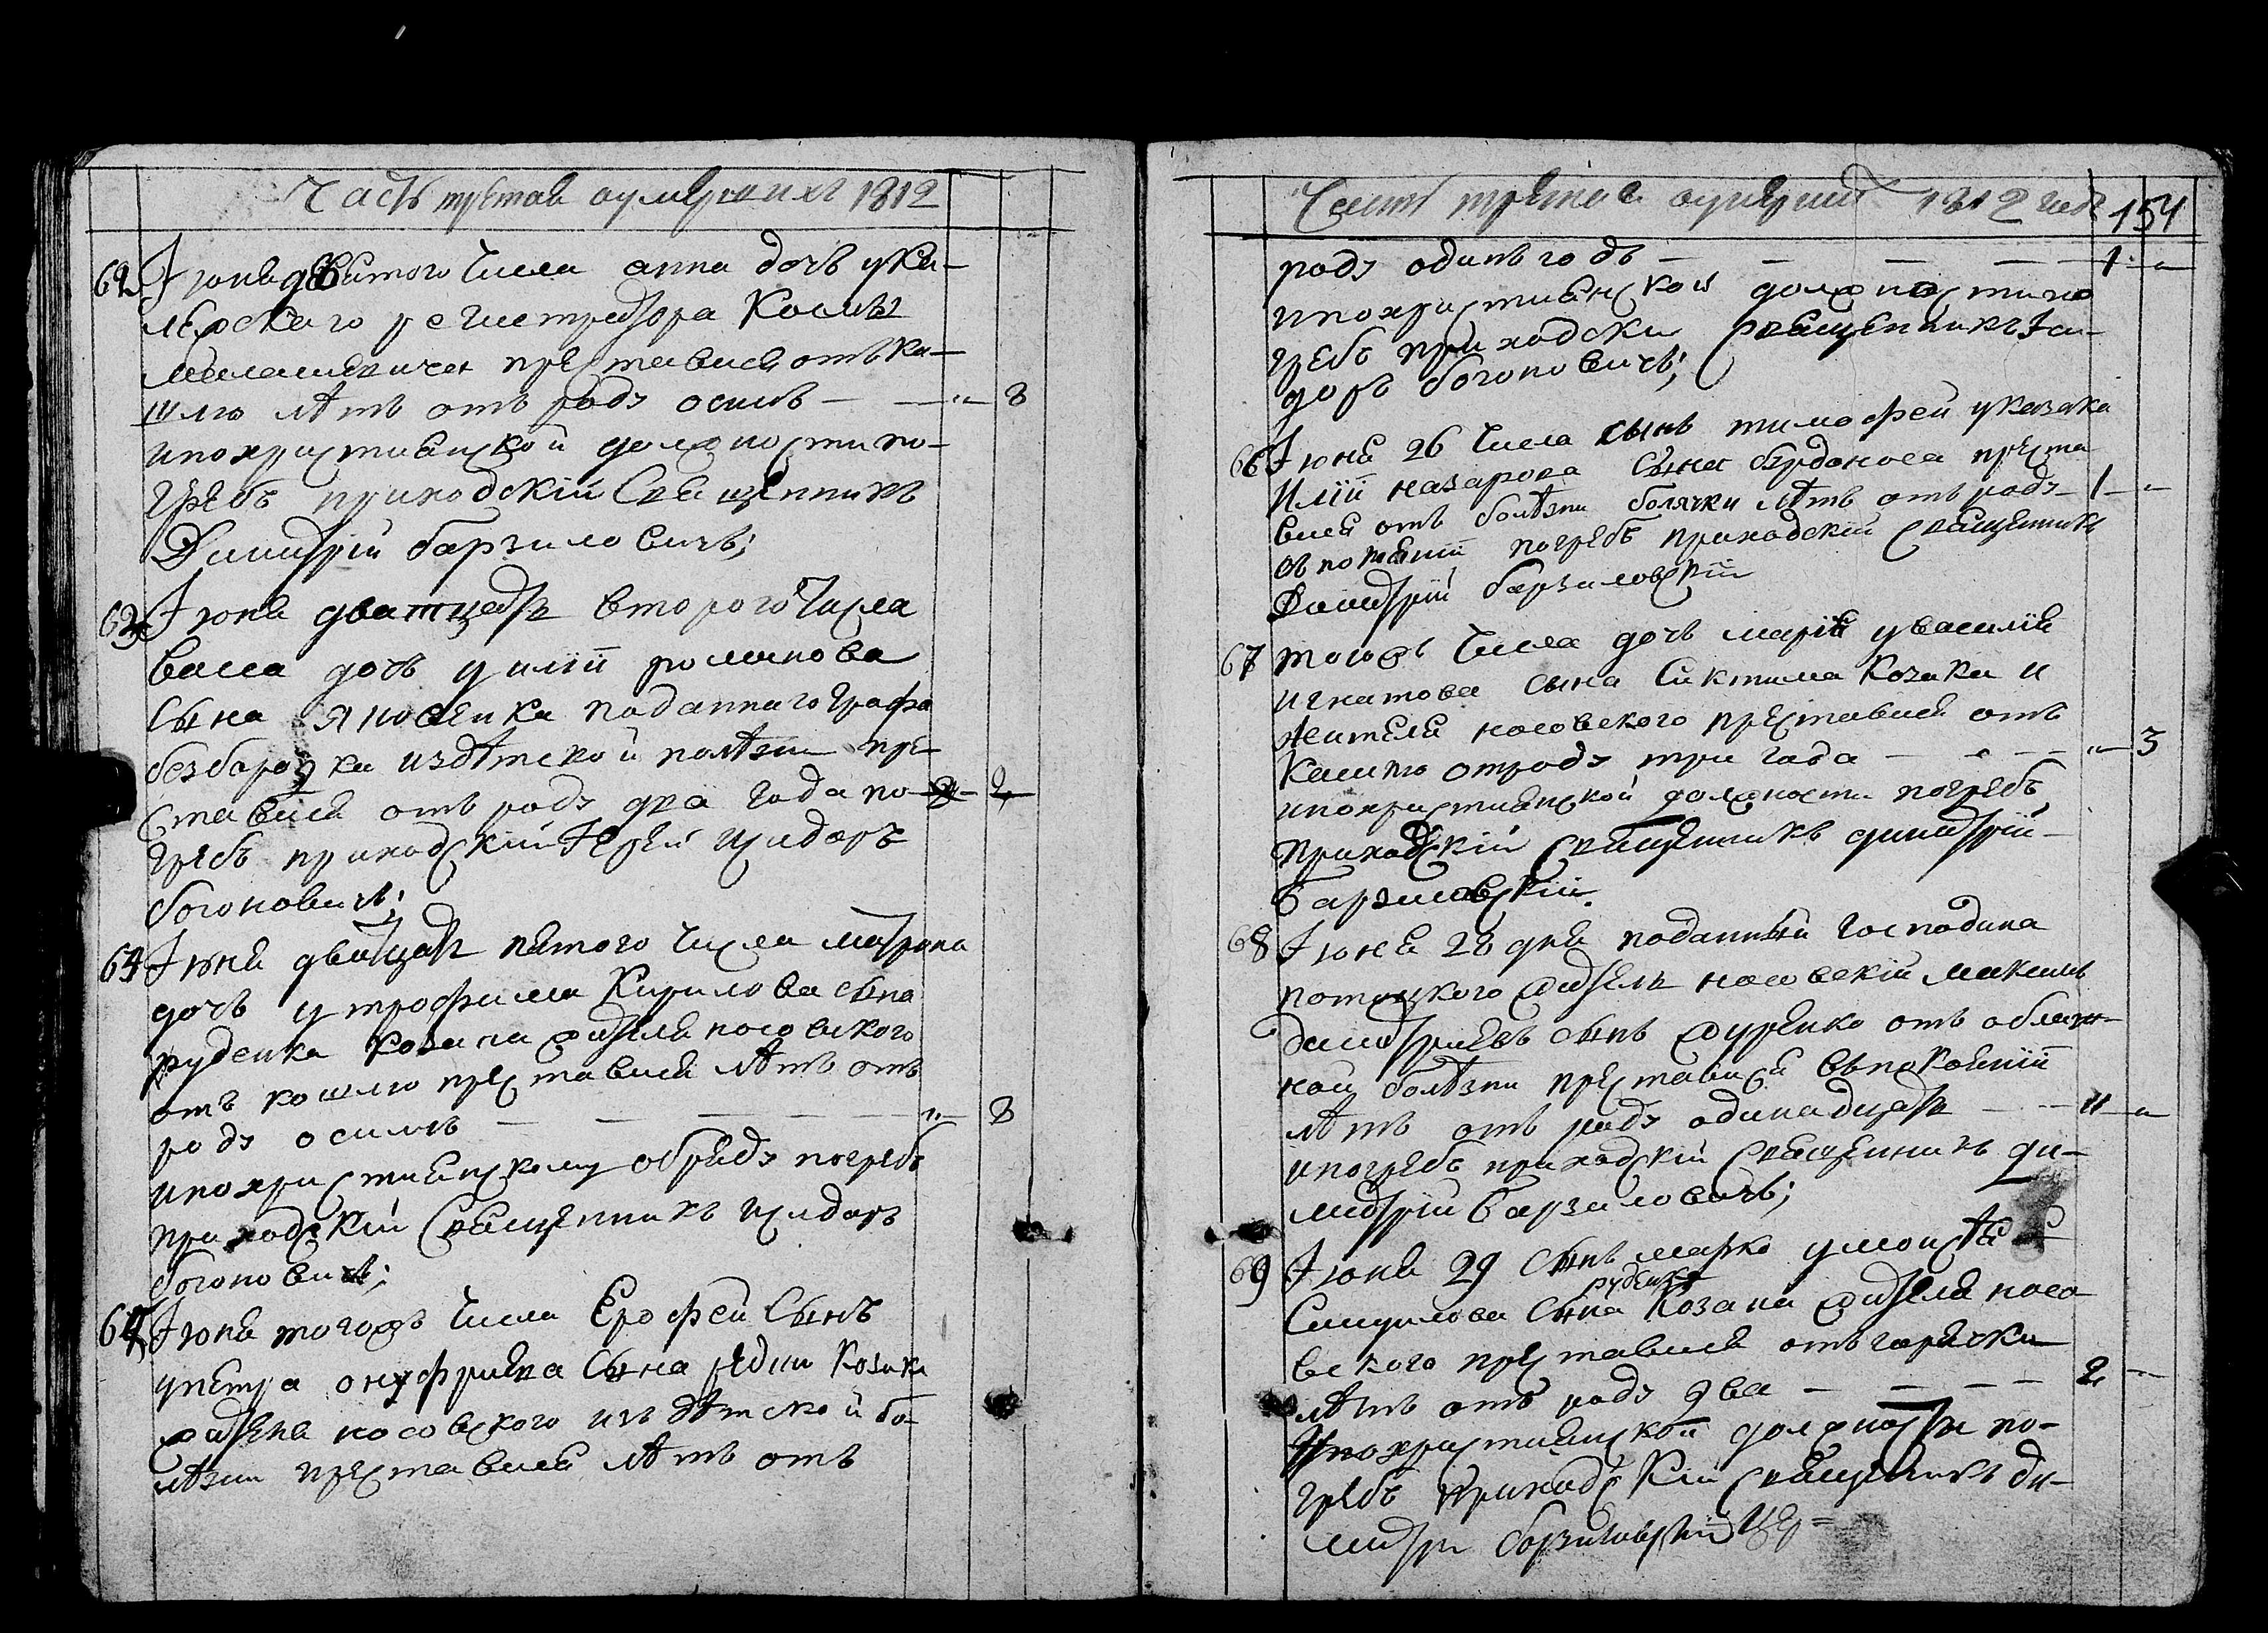 Часть третая оумершихъ 1812
62 Іюня девятого числа анна дочъ ука-
лежского регистратора Космы
Миланевича преставися отъ ка-
шлю лѣтъ отъ роду осимъ — — „ — 8
ипохристиянской должности по-
гребъ приходскій Священникъ
Димитрій барзиловичъ;
63 Іюня дватцать второго Числа
васса дочъ у иліи романова
Сына яносенка подданнаго графа
безбародки издѣтской полѣзни пре
ставися отъ роду два года по — 2
гребъ приходскій Іерей Исидоръ
богоновичъ;
64 Іюня двацать пятого числа матрона
дочъ у трофима Кирилова сына
руденка козака жителя носовского
отъ кошлю преставися лѣтъ отъ
роду осимъ — — — — „ — 8
ипохристиянскому обряду погребъ
приходскій Священникъ Исидоръ
богоновичъ;
65 Іюня тогожъ числа Ерофей Сынъ
упетра онуфриева Сына редки козака
жителя носовского изъ дѣтской бо-
лѣзни преставися лѣтъ отъ
Часть третая оумерших 1812 года 154
роду одинъ годъ — — — — 1 — „
ипохристиянской должности по
гребъ приходски священникъ Іси-
доръ богоновичъ;
66 Іюня 26 числа сынъ тимофей у козака
Иліи назарова Сына бердоноса преста
вися отъ болѣзни болячки лѣтъ отъ роду — 1 — „
погребъ приходскій священникъ
Димитрій барзиловскій
67 тогожъ числа дочъ марія увасилія
игнатова сына Сиктима Козака и
жителя носовского преставися отъ
Кашлю отроду три года — — — „ — 3
ипохристиянской должности погребъ
приходскій священникъ димитрій
Барзиловскій.
68 Іюня 28 дня поданный Господина
потоцкого житель носовскій максимъ
димитріевъ сынъ журенко отъ
ной болѣзни преставися
лѣтъ отъ роду одинадцать — — 11 — „
ипогребъ приходскій священникъ ди-
митрій барзиловичъ;
69 Іюня 29 Сынъ марко умоисѣя
руденка
Самуилова Сына Козака жителя носо
вского преставися отъ горячки
лѣтъ отъ роду два — — — — 2 —
Ипохристиянской должности по-
гребъ приходскій священникъ ди-
митри борзиловскій